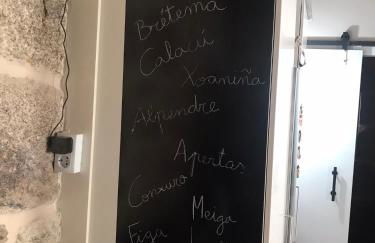 Brétema
Calacú
Xoaniña
Alpendre
Apertas
Conxuro
Meiga
Figa